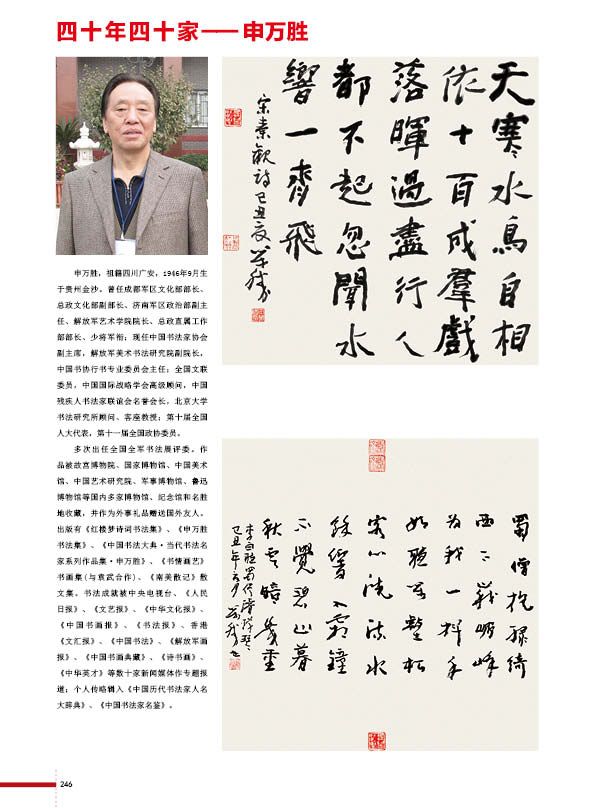 四十年四十家——申万胜
申万胜，祖籍四川广安，1946年9月生
于贵州金沙。曾任成都军区文化部部长、
总政文化部副部长、济南军区政治部副主
任、解放军艺术学院院长、总政直属工作
部部长、少将军衔；现任中国书法家协会
副主席，解放军美术书法研究院副院长，
中国书协行书专业委员会主任；全国文联
委员，中国国际战略学会高级顾问，中国
残疾人书法家联谊会名誉会长，北京大学
书法研究所顾问、客座教授；第十届全国
人大代表，第十一届全国政协委员。
多次出任全国全军书法展评委。作
品被故宫博物院、国家博物馆、中国美术
馆、中国艺术研究院、军事博物馆、鲁迅
博物馆等国内多家博物馆、纪念馆和名胜
地收藏，并作为外事礼品赠送国外友人。
出版有《红楼梦诗词书法集》、《申万胜
书法集》、《中国书法大典·当代书法名
家系列作品集·申万胜》、《书情画艺》
书画集(与袁武合作)、《南美散记》散
文集。书法成就被中央电视台、《人民
日报》、《文艺报》、《中华文化报》、
《中国书画报》、《书法报》、香港
《文汇报》、《中国书法》、《解放军画
报》、《中国书画典藏》、《诗书画》、
《中华英才》等数十家新闻媒体作专题报
道；个人传略辑入《中国历代书法家人名
大辞典》、《中国书法家名鉴》。
天寒水鳥自相
依十百成羣戲
落暉過盡行人
都不起忽聞水
響一齊飛
宋秦觀詩己丑夏萬勝
蜀僧抱綠綺
西下峨嵋峰
为我一揮手
如聽萬壑松
客心洗流水
餘響入霜鐘
不覺碧山暮
秋雲暗幾重
李白聽蜀僧濬彈琴
己丑年
246